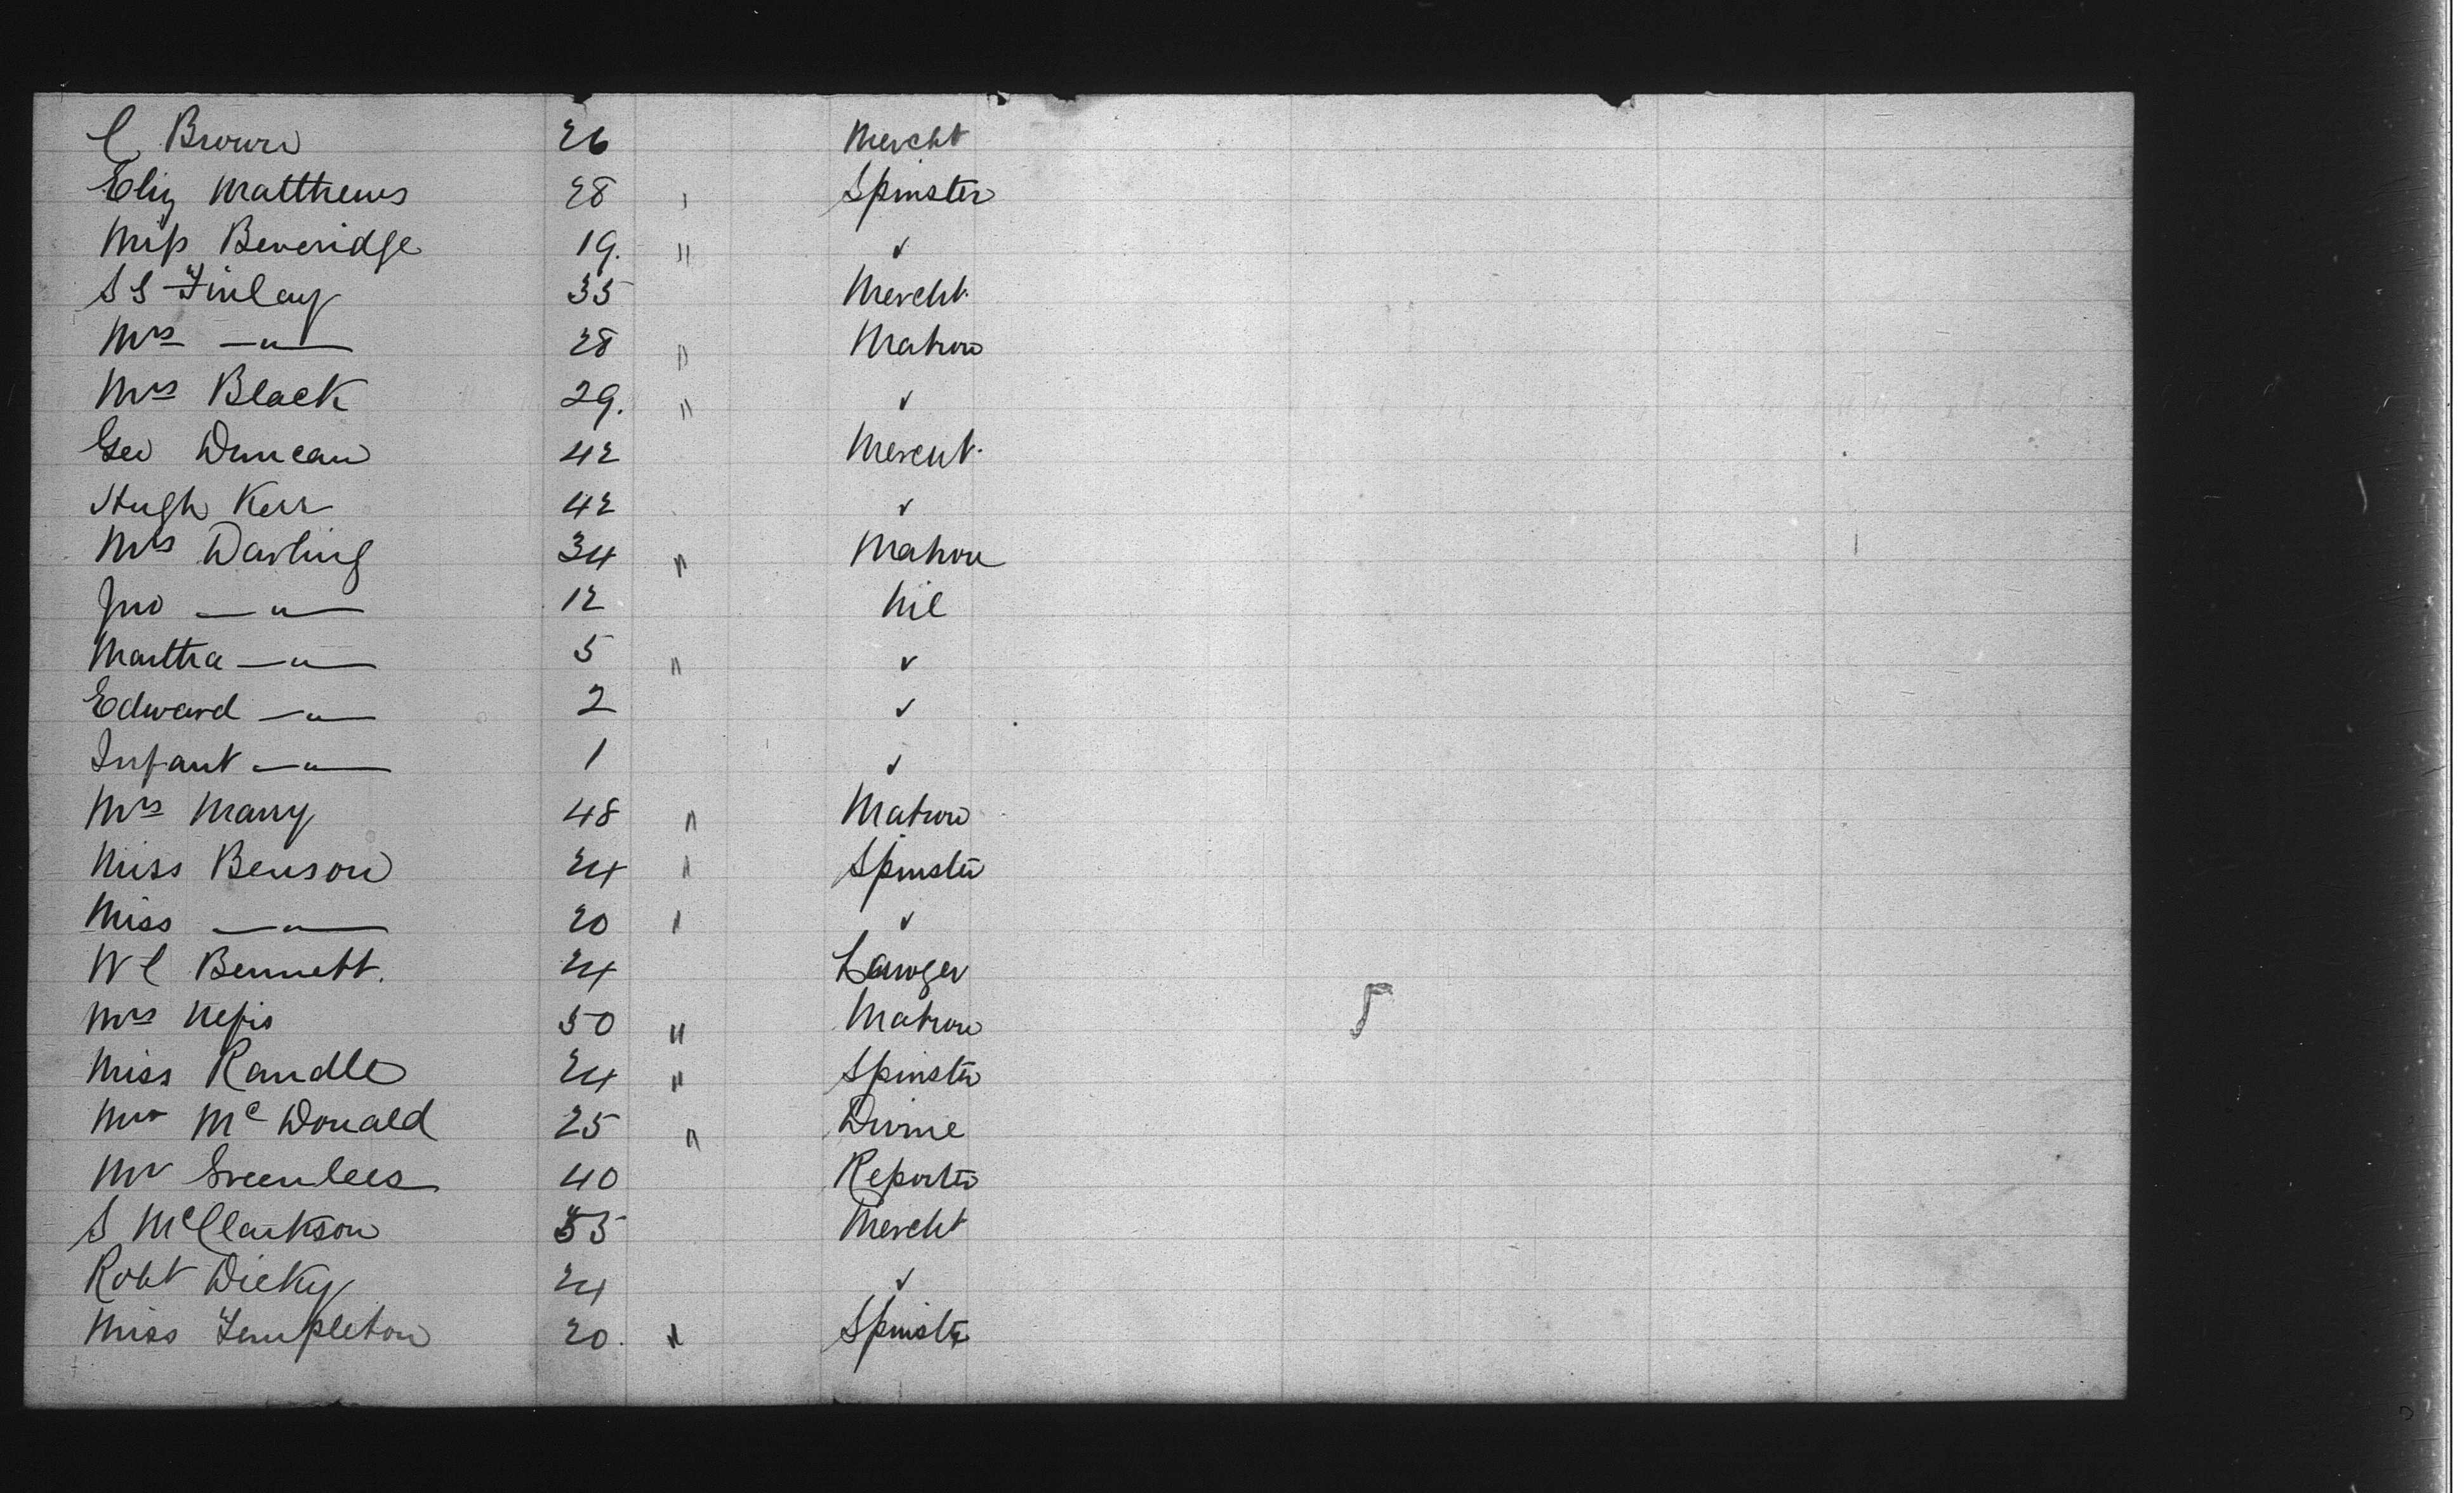 C Brown 26 Mercht
Eliz Matthews 28 " Spinster
Miss Beveridge 19. " ✓
S S Finlay 35 Mercht.
Mrs —"— 28 " Matron
Mrs Black 29. " ✓
Geo Duncan 42 Mercht.
Hugh Kerr 42 ✓
Mrs Darling 34 " Matron
Jno —"— 12 Nil
Martha —"— 5 " ✓
Edward —"— 2 ✓
Infant —"— 1 ✓
Mrs Marry 48 " Matron
Miss Benson 24 " Spinster
Miss —"— 20 " ✓
W C Bennett. 24 Lawyer
Mrs 50 " Matron
Miss Randle 24 " Spinster
McDonald 25 " Divine
Mr Greenlees 40 Reporter
S McClarkson Mercht
Robt Dicky 24 ✓
Miss Templeton 20. " Spinster